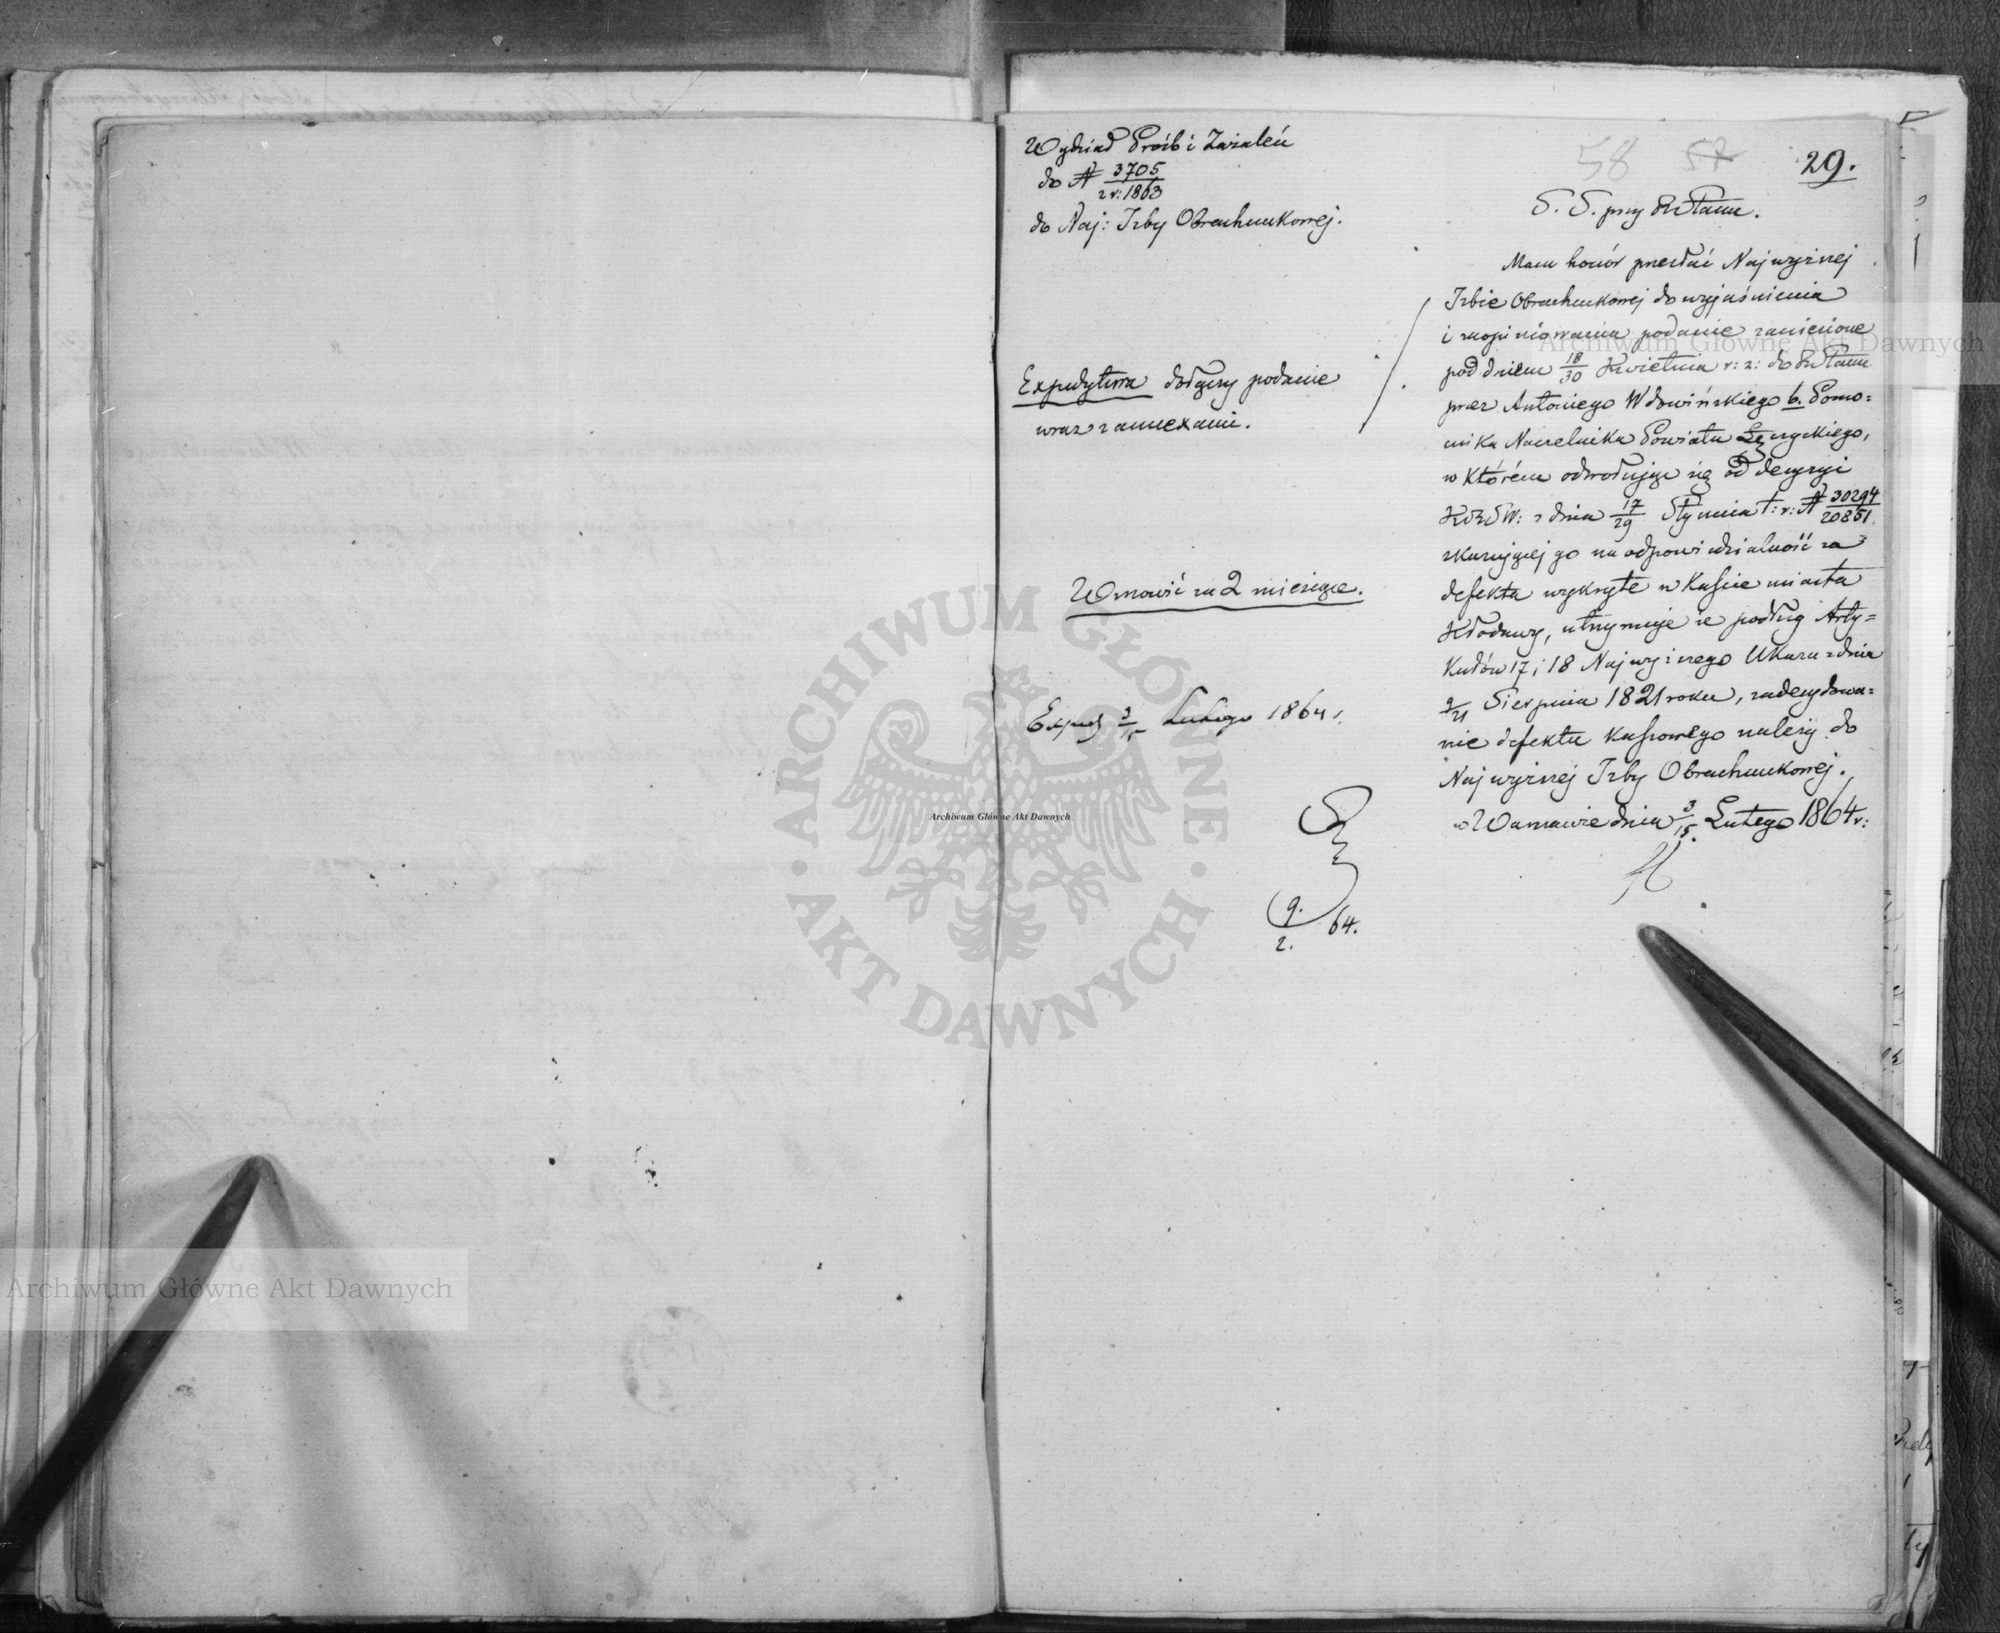 Wydział Próśb i Zażaleń
do № 3705
z r: 1863
do Naj: Izby Obrachunkowej.
Expedytura dołączy podanie
wraz z annexami.
Wznowić za 2 miesiące.
Exped 3/15 Lutego 1864 r.
9.
2. 64.
58 57 29.
S. S. przy RStanu.
Mam honor przesłać Najwyższej
Izbie Obrachunkowej do wyjaśnienia
i zaopiniowania podanie zaniesione
pod dniem 18/30 Kwietnia r: z: do RStanu
przez Antoniego Wdowińskiego b. Pomo=
cnika Naczelnika Powiatu Łęczyckiego,
w którém odwołując się od decyzyi
KRSW: z dnia 17/29 Stycznia t: r: № 30294/20851.
skazującej go na odpowiedzialność za
defekta wykryte w Kassie miasta
Kłodawy, utrzymuje że podług Arty=
kułów 17 i 18 Najwyższego Ukazu z dnia
9/21 Sierpnia 1821 roku, zadecydowa=
nie defektu kassowego należy do
Najwyższej Izby Obrachunkowej.
w Warszawie dnia 3/15 Lutego 1864 r:
ARCHIWUM GŁÓWNE AKT DAWNYCH
Archiwum Główne Akt Dawnych
Archiwum Główne Akt Dawnych
Archiwum Główne Akt Dawnych